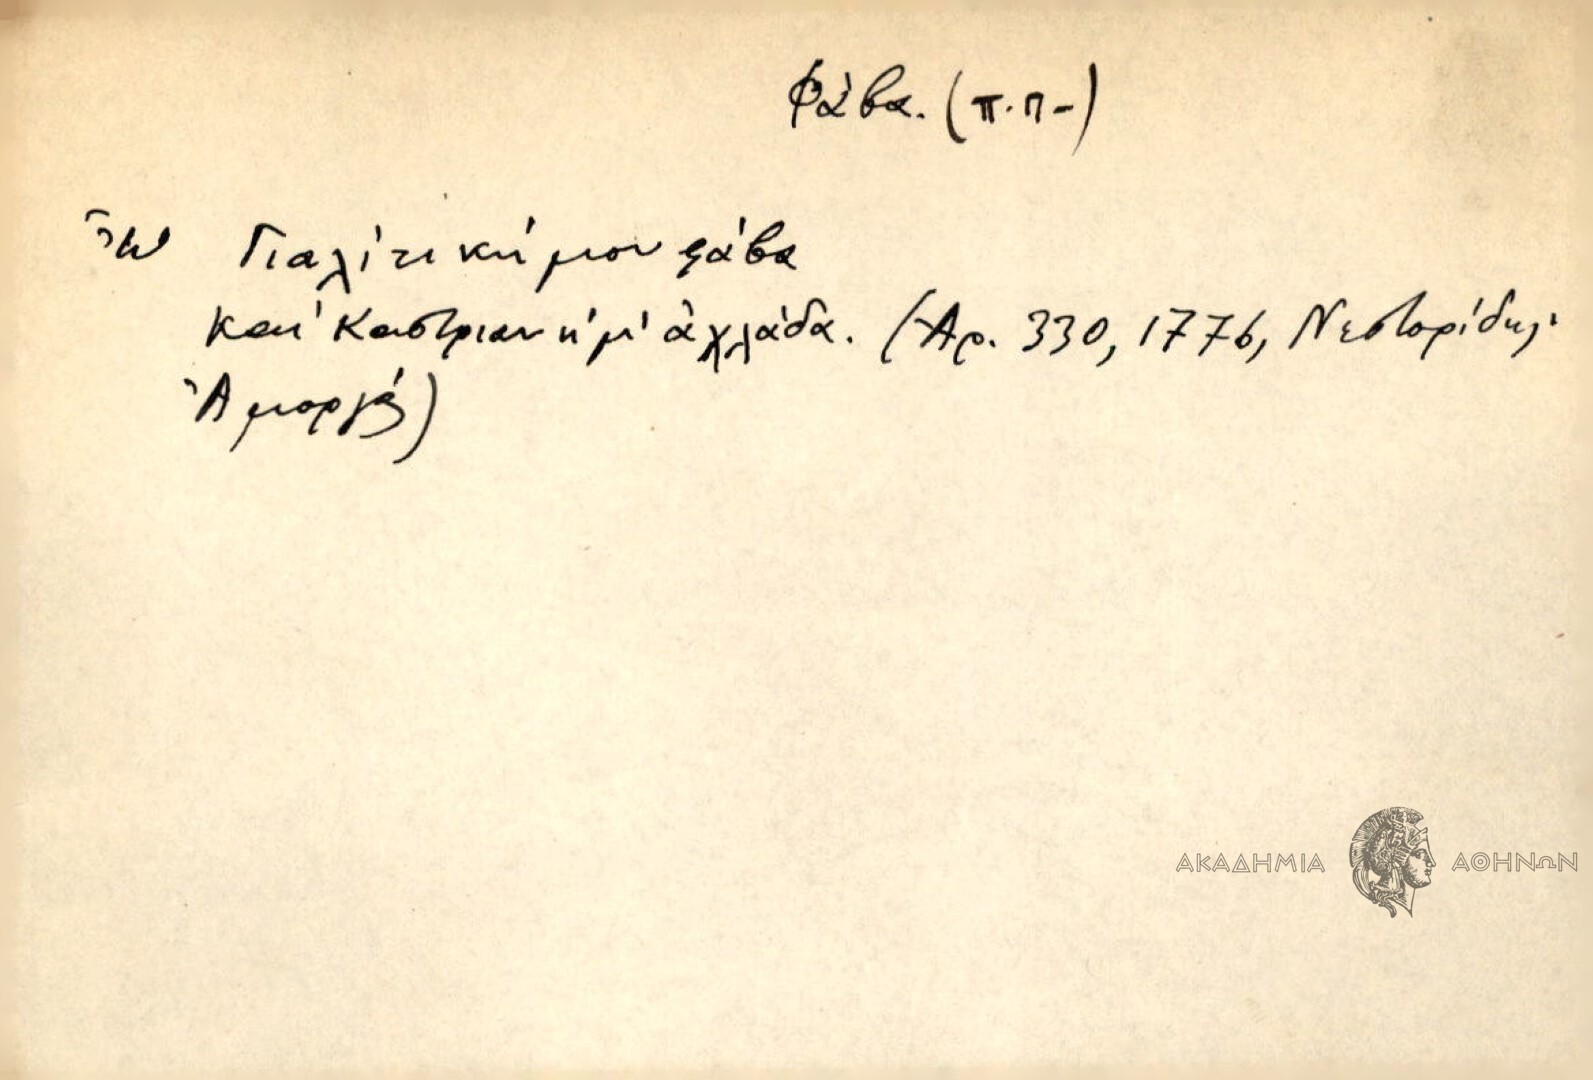 Φάβα. (π.π-)
Ὦ Γιαλίτικη μου φάβα
καὶ Καστριανή μ' ἀχλάδα. (Ἀρ. 330, 1776, Νεστορίδης·
Ἀμοργός)
ΑΚΑΔΗΜΙΑ ΑΘΗΝΩΝ